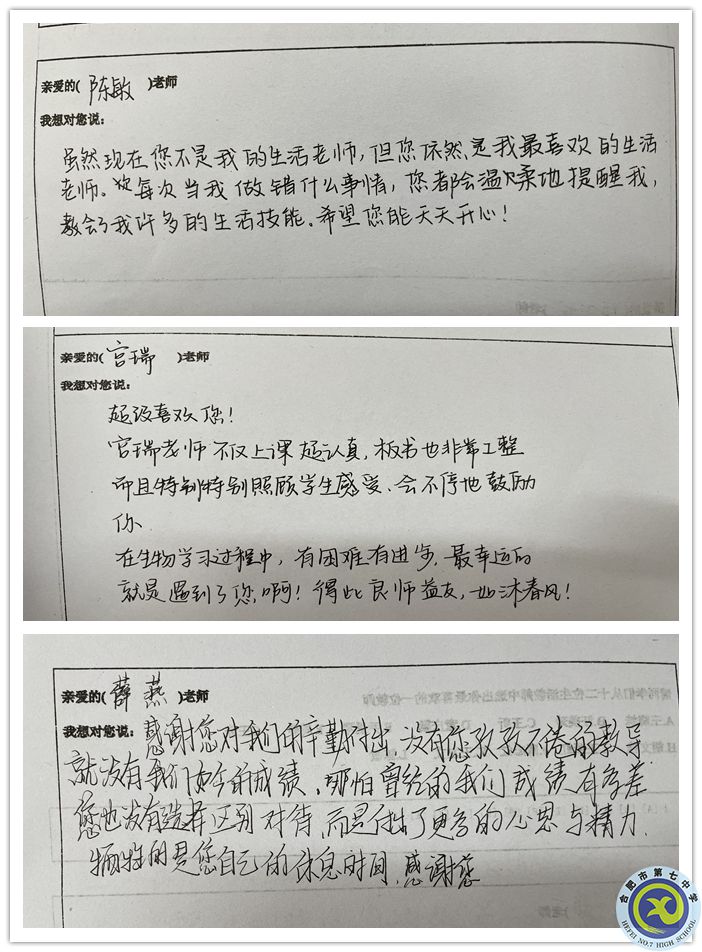 亲爱的( 陈敏 )老师
我想对您说:
虽然现在您不是我的生活老师,但您依然是我最喜欢的生活
老师。每次当我做错什么事情,您都会温柔地提醒我,
教会了我许多的生活技能。希望您能天天开心!
亲爱的( 宫瑞 )老师
我想对您说:
超级喜欢您!
宫瑞老师不仅上课超认真,板书也非常工整
而且特别特别照顾学生感受、会不停地鼓励
你.
在生物学习过程中,有困难有进步,最幸运的
就是遇到了您啊!得此良师益友,如沐春风!
亲爱的( 薛燕 )老师
我想对您说:感谢您对我们的辛勤付出,没有您孜孜不倦的教导
就没有我们如今的成绩、哪怕曾经的我们成绩有多差
您也没有选择区别对待,而是付出了更多的心思与精力.
牺牲的是您自己的休息时间,感谢您
合肥市第七中学
HEFEI NO.7 HIGH SCHOOL